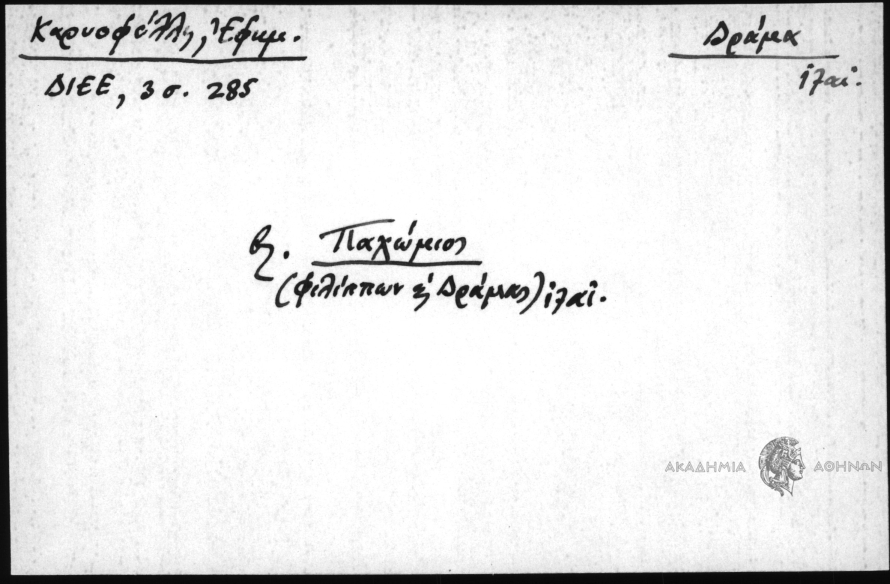 Καρυοφύλλη, Ἐφημ.
Δράμα
ΔΙΕΕ, 3 σ. 285
ιζαί.
βλ. Παχώμιος
(Φιλίππων & Δράμας) ιζαί.
ΑΚΑΔΗΜΙΑ ΑΘΗΝΩΝ